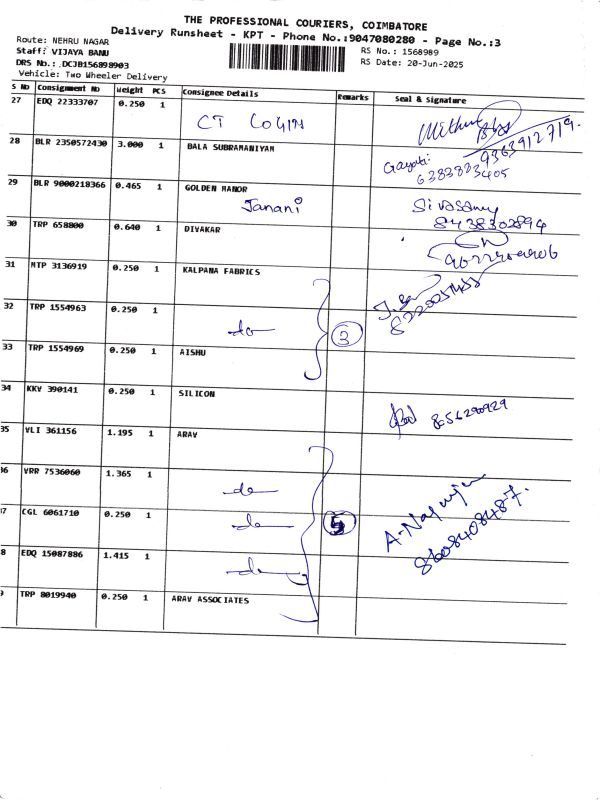 THE PROFESSIONAL COURIERS, COIMBATORE
Delivery Runsheet - KPT - Phone No.:9047080280 - Page No.:3
Route: NEHRU NAGAR
RS No.: 1568989
Staff: VIJAYA BANU
RS Date: 20-Jun-2025
DRS No.: .DCJB156898903
Vehicle: Two Wheeler Delivery
S No Consignment No Weight PCS Consignee Details Remarks Seal & Signature
27 EDQ 22333707 0.250 1 CT LOGIN 9363912719.
28 BLR 2350572430 3.000 1 BALA SUBRAMANIYAM Gayati: 6383833405
29 BLR 9000218366 0.465 1 GOLDEN MANOR
Janani Sivasamy 8438302894
30 TRP 658800 0.640 1 DIVAKAR
31 MTP 3136919 0.250 1 KALPANA FABRICS
32 TRP 1554963 0.250 1 do 3
33 TRP 1554969 0.250 1 AISHU
34 KKV 390141 0.250 1 SILICON
35 VLI 361156 1.195 1 ARAV
36 VRR 7536060 1.365 1 do
37 CGL 6061710 0.250 1 do 5 8608408487.
38 EDQ 15087886 1.415 1 do
39 TRP 8019940 0.250 1 ARAV ASSOCIATES